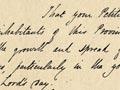 That your Petit
inhabitants of this Provin
the growth and spread of
es, particularly in the g
Lord's day.